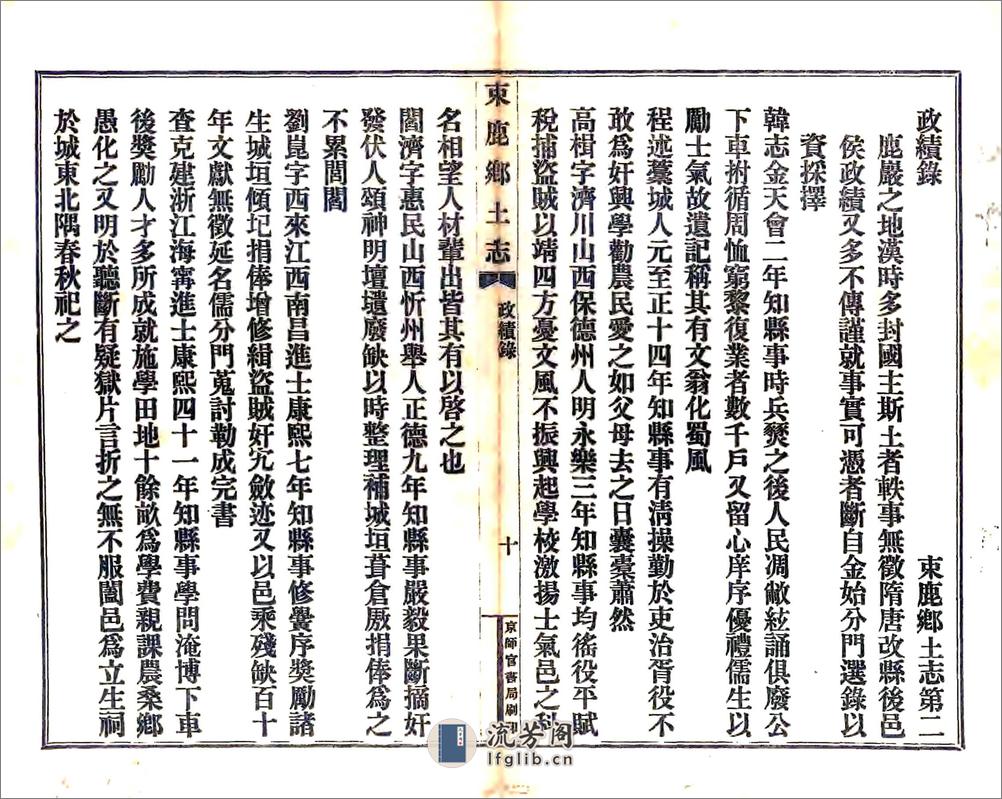 政績錄
束鹿鄉土志第二
鹿嚴之地漢時多封國主斯土者軼事無徵隋唐改縣後邑
侯政績又多不傳謹就事實可憑者斷自金始分門選錄以
資採擇
韓志金天會二年知縣事時兵燹之後人民凋敝絃誦俱廢公
下車拊循周恤窮黎復業者數千戶又留心庠序優禮儒生以
勵士氣故遺記稱其有文翁化蜀風
程述藁城人元至正十四年知縣事有淸操勤於吏治胥役不
敢爲奸興學勸農民愛之如父母去之日囊橐蕭然
高楫字濟川山西保德州人明永樂三年知縣事均徭役平賦
稅捕盜賊以靖四方憂文風不振興起學校激揚士氣邑之科
束鹿鄉土志
政績錄
十
京師官書局刷印
名相望人材輩出皆其有以啓之也
閻濟字惠民山西忻州舉人正德九年知縣事嚴毅果斷摘奸
發伏人頌神明壇壝廢缺以時整理補城垣葺倉厫捐俸爲之
不累閭閻
劉崑字西來江西南昌進士康熙七年知縣事修黌序獎勵諸
生城垣傾圮捐俸增修緝盜賊奸宄斂迹又以邑乘殘缺百十
年文獻無徵延名儒分門蒐討勒成完書
查克建浙江海甯進士康熙四十一年知縣事學問淹博下車
後獎勵人才多所成就施學田地十餘畝爲學費親課農桑鄉
愚化之又明於聽斷有疑獄片言折之無不服闔邑爲立生祠
於城東北隅春秋祀之
流芳阁
lfglib.cn